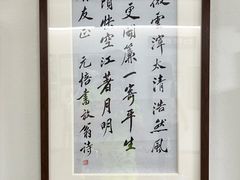 微雲渾太清浩然風
更開簾一寄平生
空江著月明
友正 元培書放翁詩